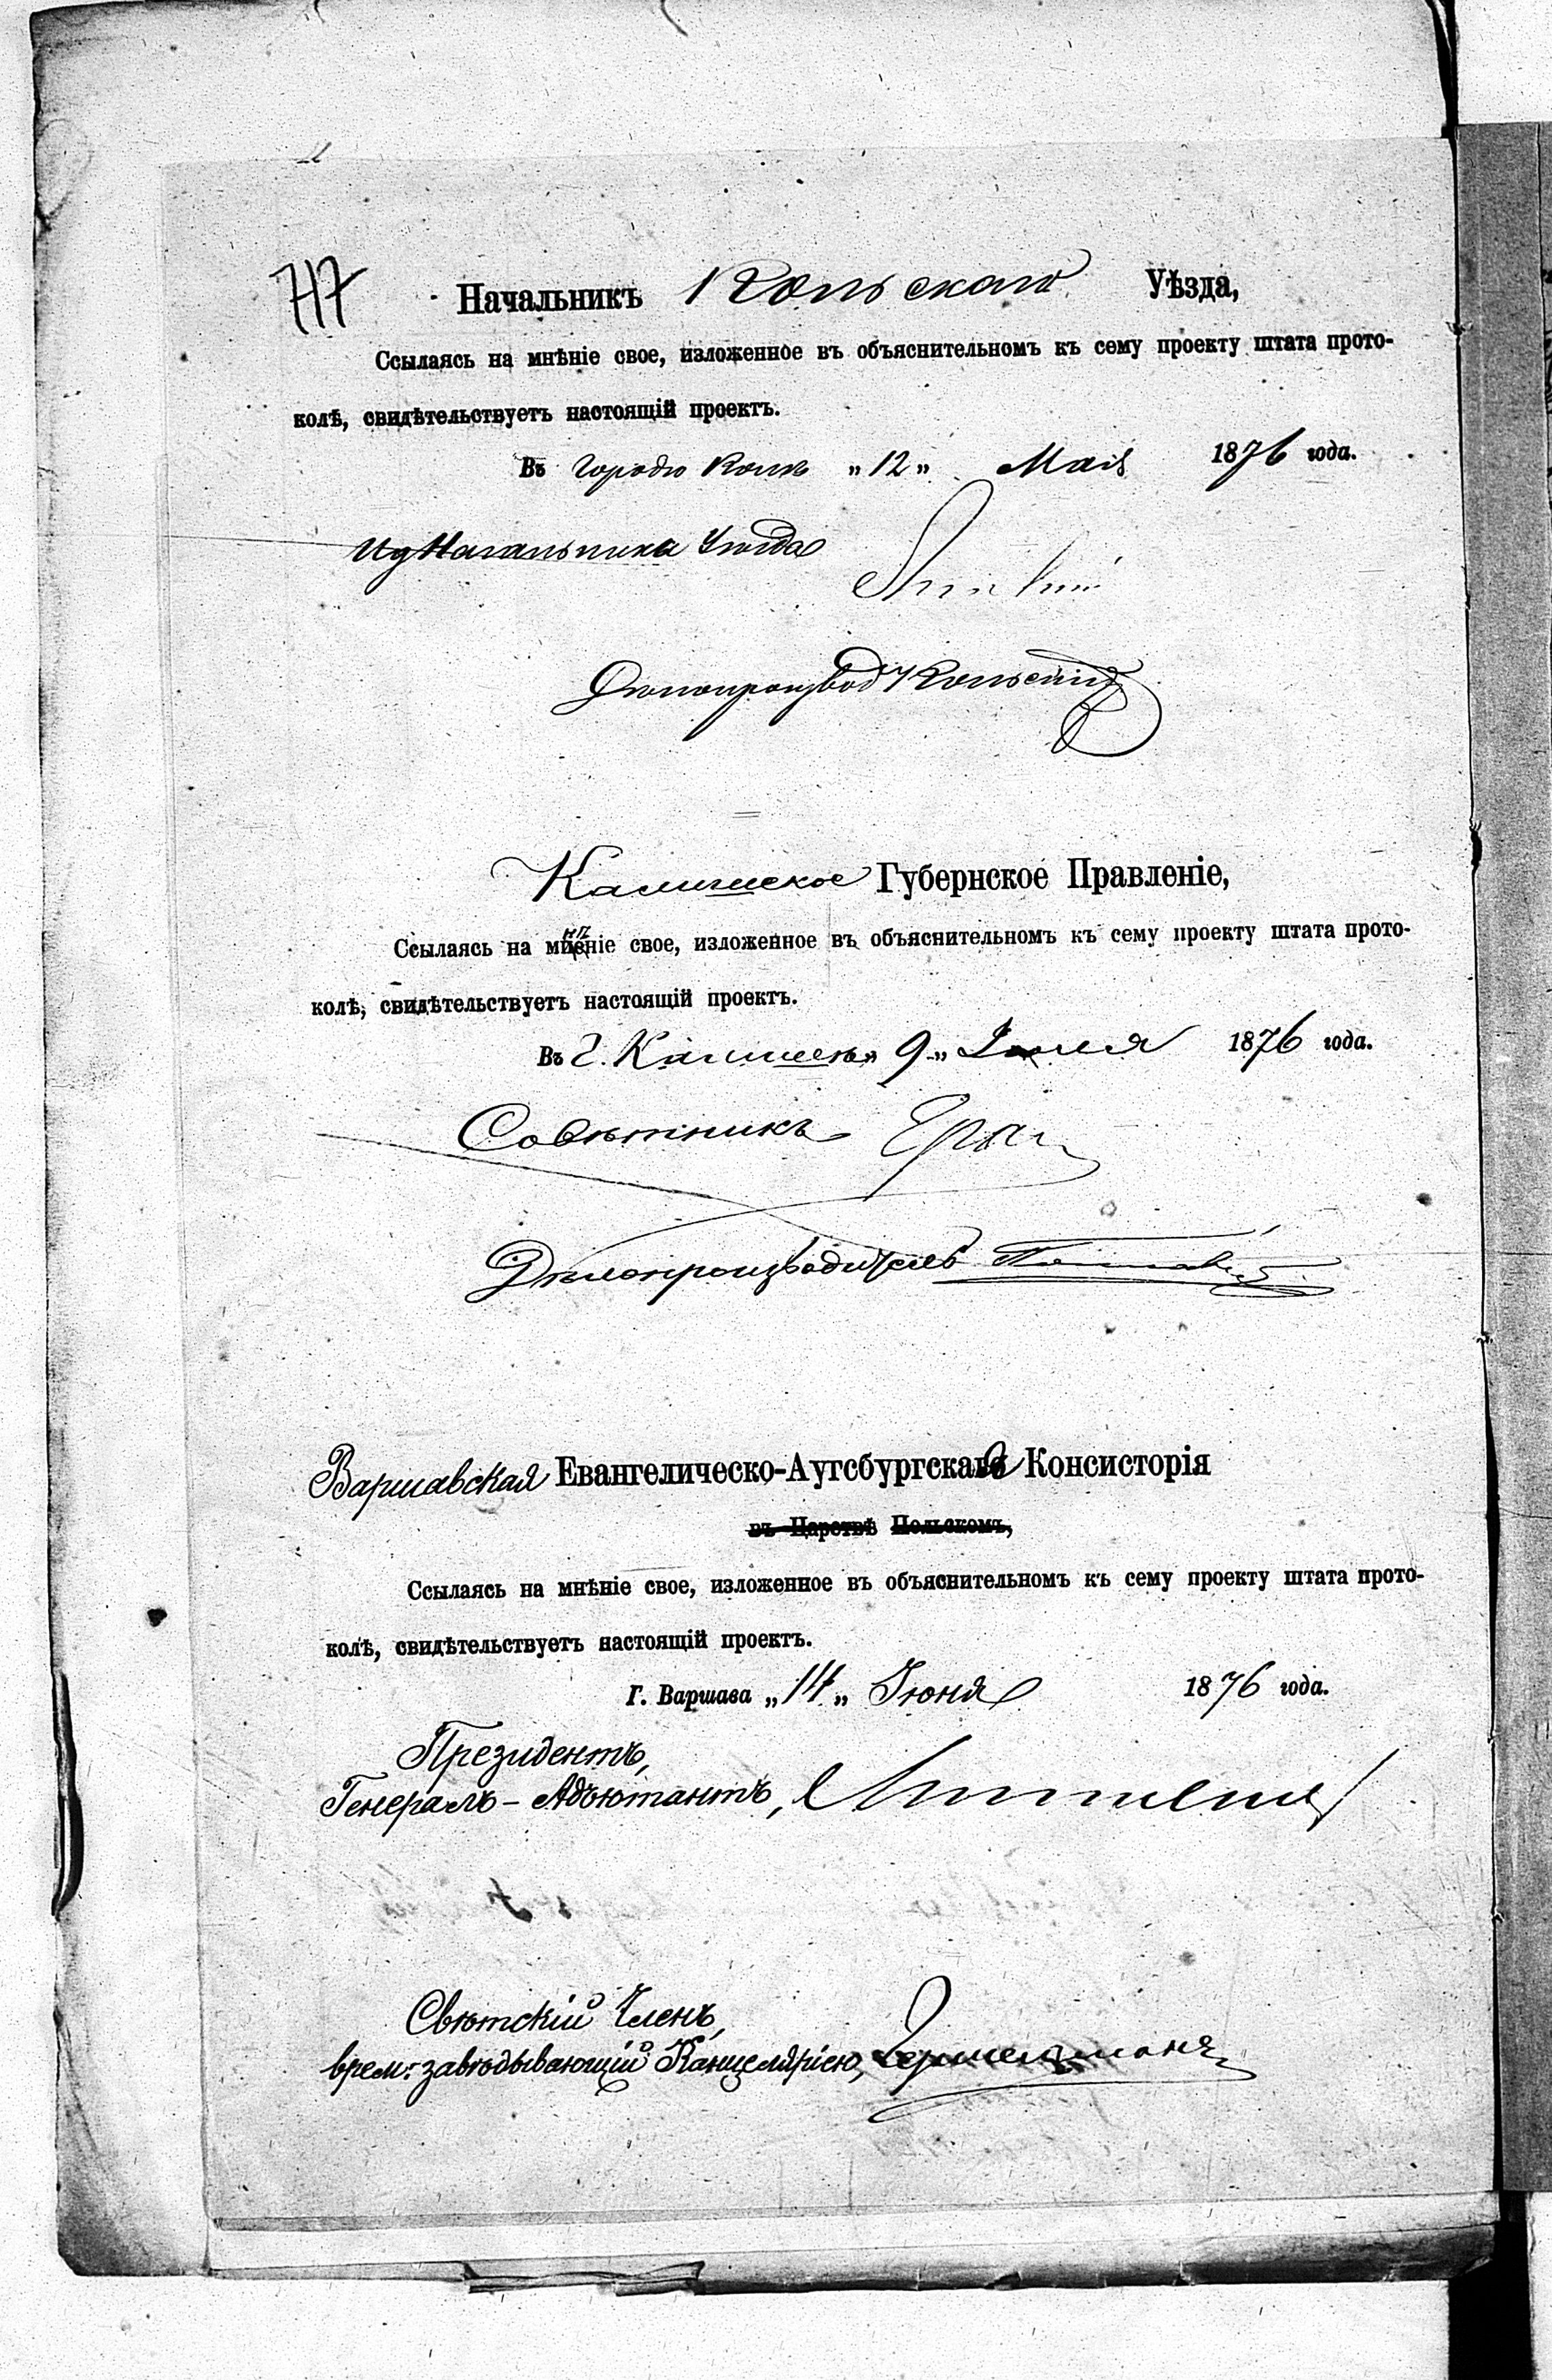 717
Начальникъ Кольскаго Уѣзда,
Ссылаясь на мнѣніе свое, изложенное въ объяснительномъ къ сему проекту штата прото-
колѣ, свидѣтельствуетъ настоящій проектъ.
Въ городѣ Колѣ „12„ Мая 1876 года.
Ид Начальника Уѣзда
Дѣлопроизвод Кольскій
Калишское Губернское Правленіе,
Ссылаясь на мнѣніе свое, изложенное въ объяснительномъ къ сему проекту штата прото-
колѣ, свидѣтельствуетъ настоящій проектъ.
Въ г. Калишѣ „ 9 „ Іюля 1876 года.
Совѣтникъ
Дѣлопроизводитель
Варшавская Евангелическо-Аугсбургская Консисторія
въ Царствѣ Польскомъ,
Ссылаясь на мнѣніе свое, изложенное въ объяснительномъ къ сему проекту штата прото-
колѣ, свидѣтельствуетъ настоящій проектъ.
Г. Варшава „14„ Іюня 1876 года.
Президентъ,
Генералъ-Адъютантъ,
Свѣтскій Членъ,
врем: завѣдывающій Канцеляріею,